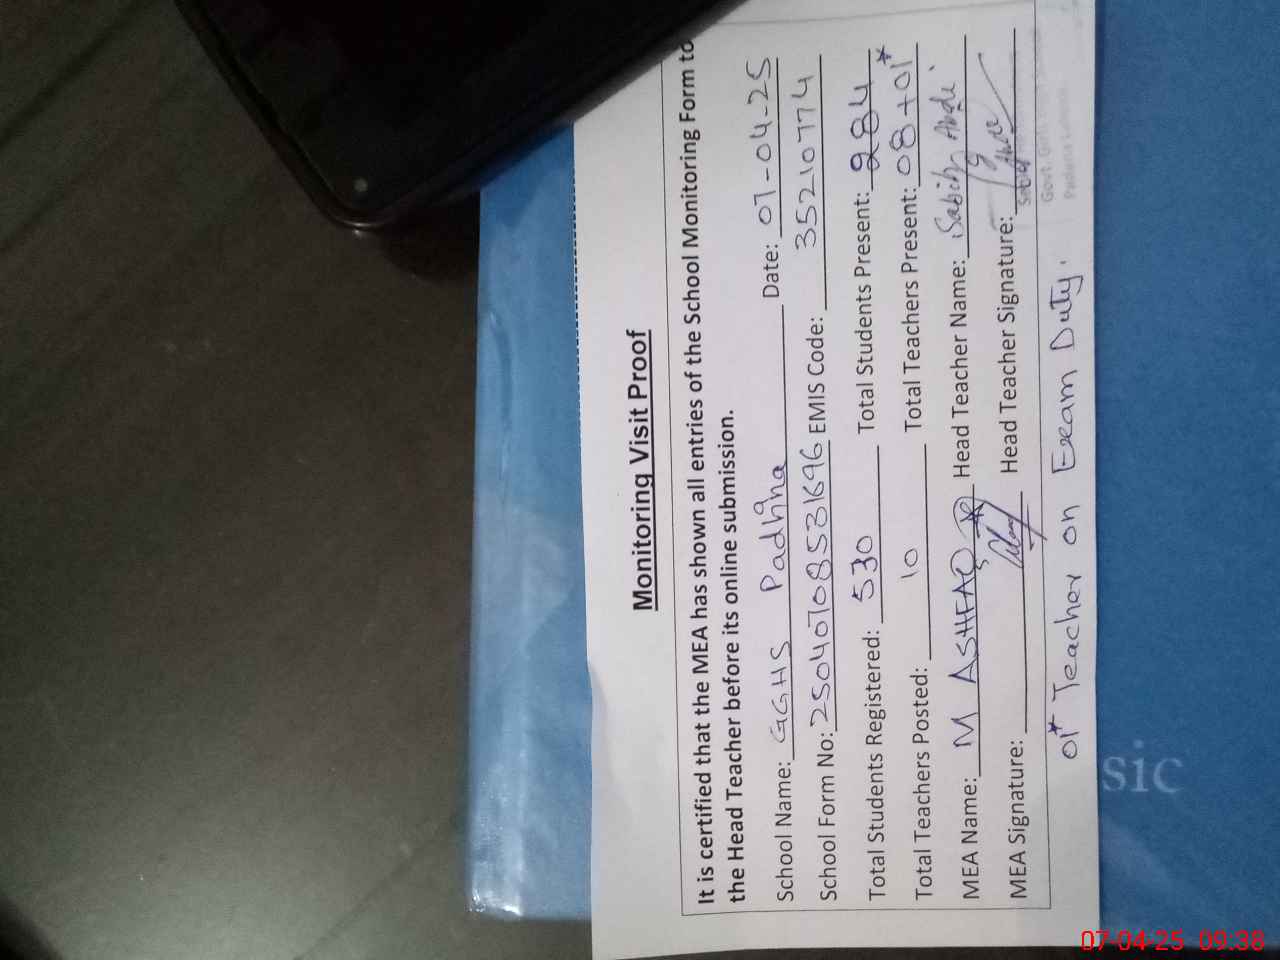 Monitoring Visit Proof
It is certified that the MEA has shown all entries of the School Monitoring Form to
the Head Teacher before its online submission.
School Name: GGHS Padhna Date: 07-04-25
School Form No: 250407085331696 EMIS Code: 35210774
Total Students Registered: 530 Total Students Present: 284
Total Teachers Posted: 10 Total Teachers Present: 08+01*
MEA Name: M ASHFAQ Head Teacher Name: Sabiha
MEA Signature: Head Teacher Signature:
01* Teacher on Exam Duty.
Govt. Girls
sic
07-04-25 09:38